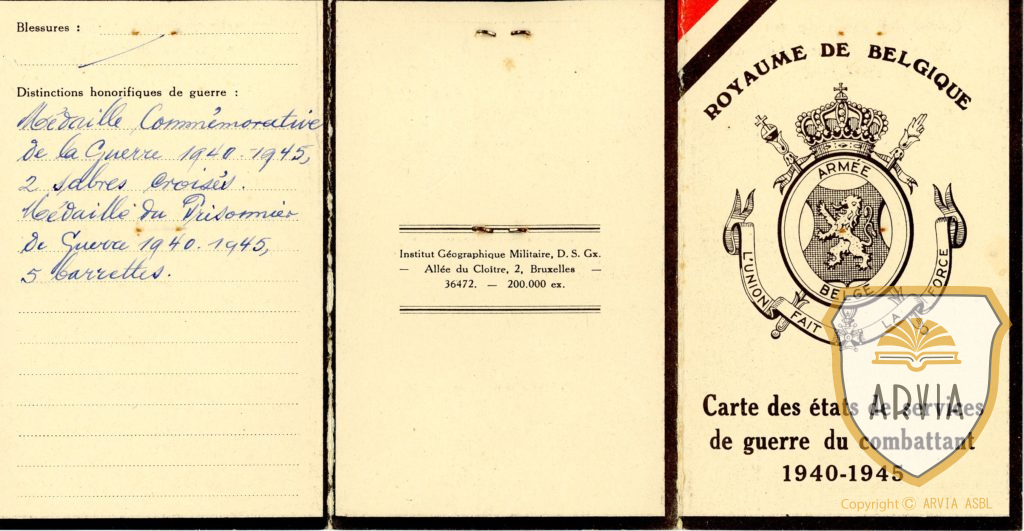 Blessures :
Distinctions honorifiques de guerre :
Médaille Commémorative
de la Guerre 1940-1945,
2 sabres croisés.
Médaille du Prisonnier
de Guerre 1940-1945,
5 barrettes.
Institut Géographique Militaire, D. S. Gx.
— Allée du Cloître, 2, Bruxelles —
36472. — 200.000 ex.
ROYAUME DE BELGIQUE
ARMÉE
BELGE
L'UNION FAIT LA FORCE
Carte des états de services
de guerre du combattant
1940-1945
ARVIA
Copyright © ARVIA ASBL